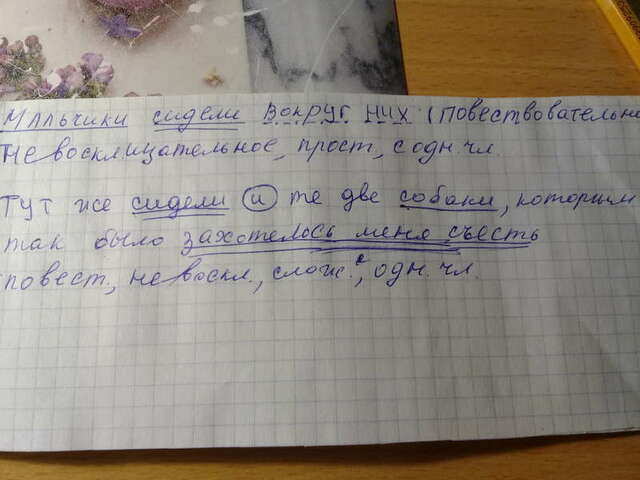 Мальчики сидели вокруг них (повествовательн
невосклицательное, прост, с одн. чл.
Тут же сидели и те две собаки, которым
так было захотелось меня съесть
повест, невоскл., слож. с одн. чл.